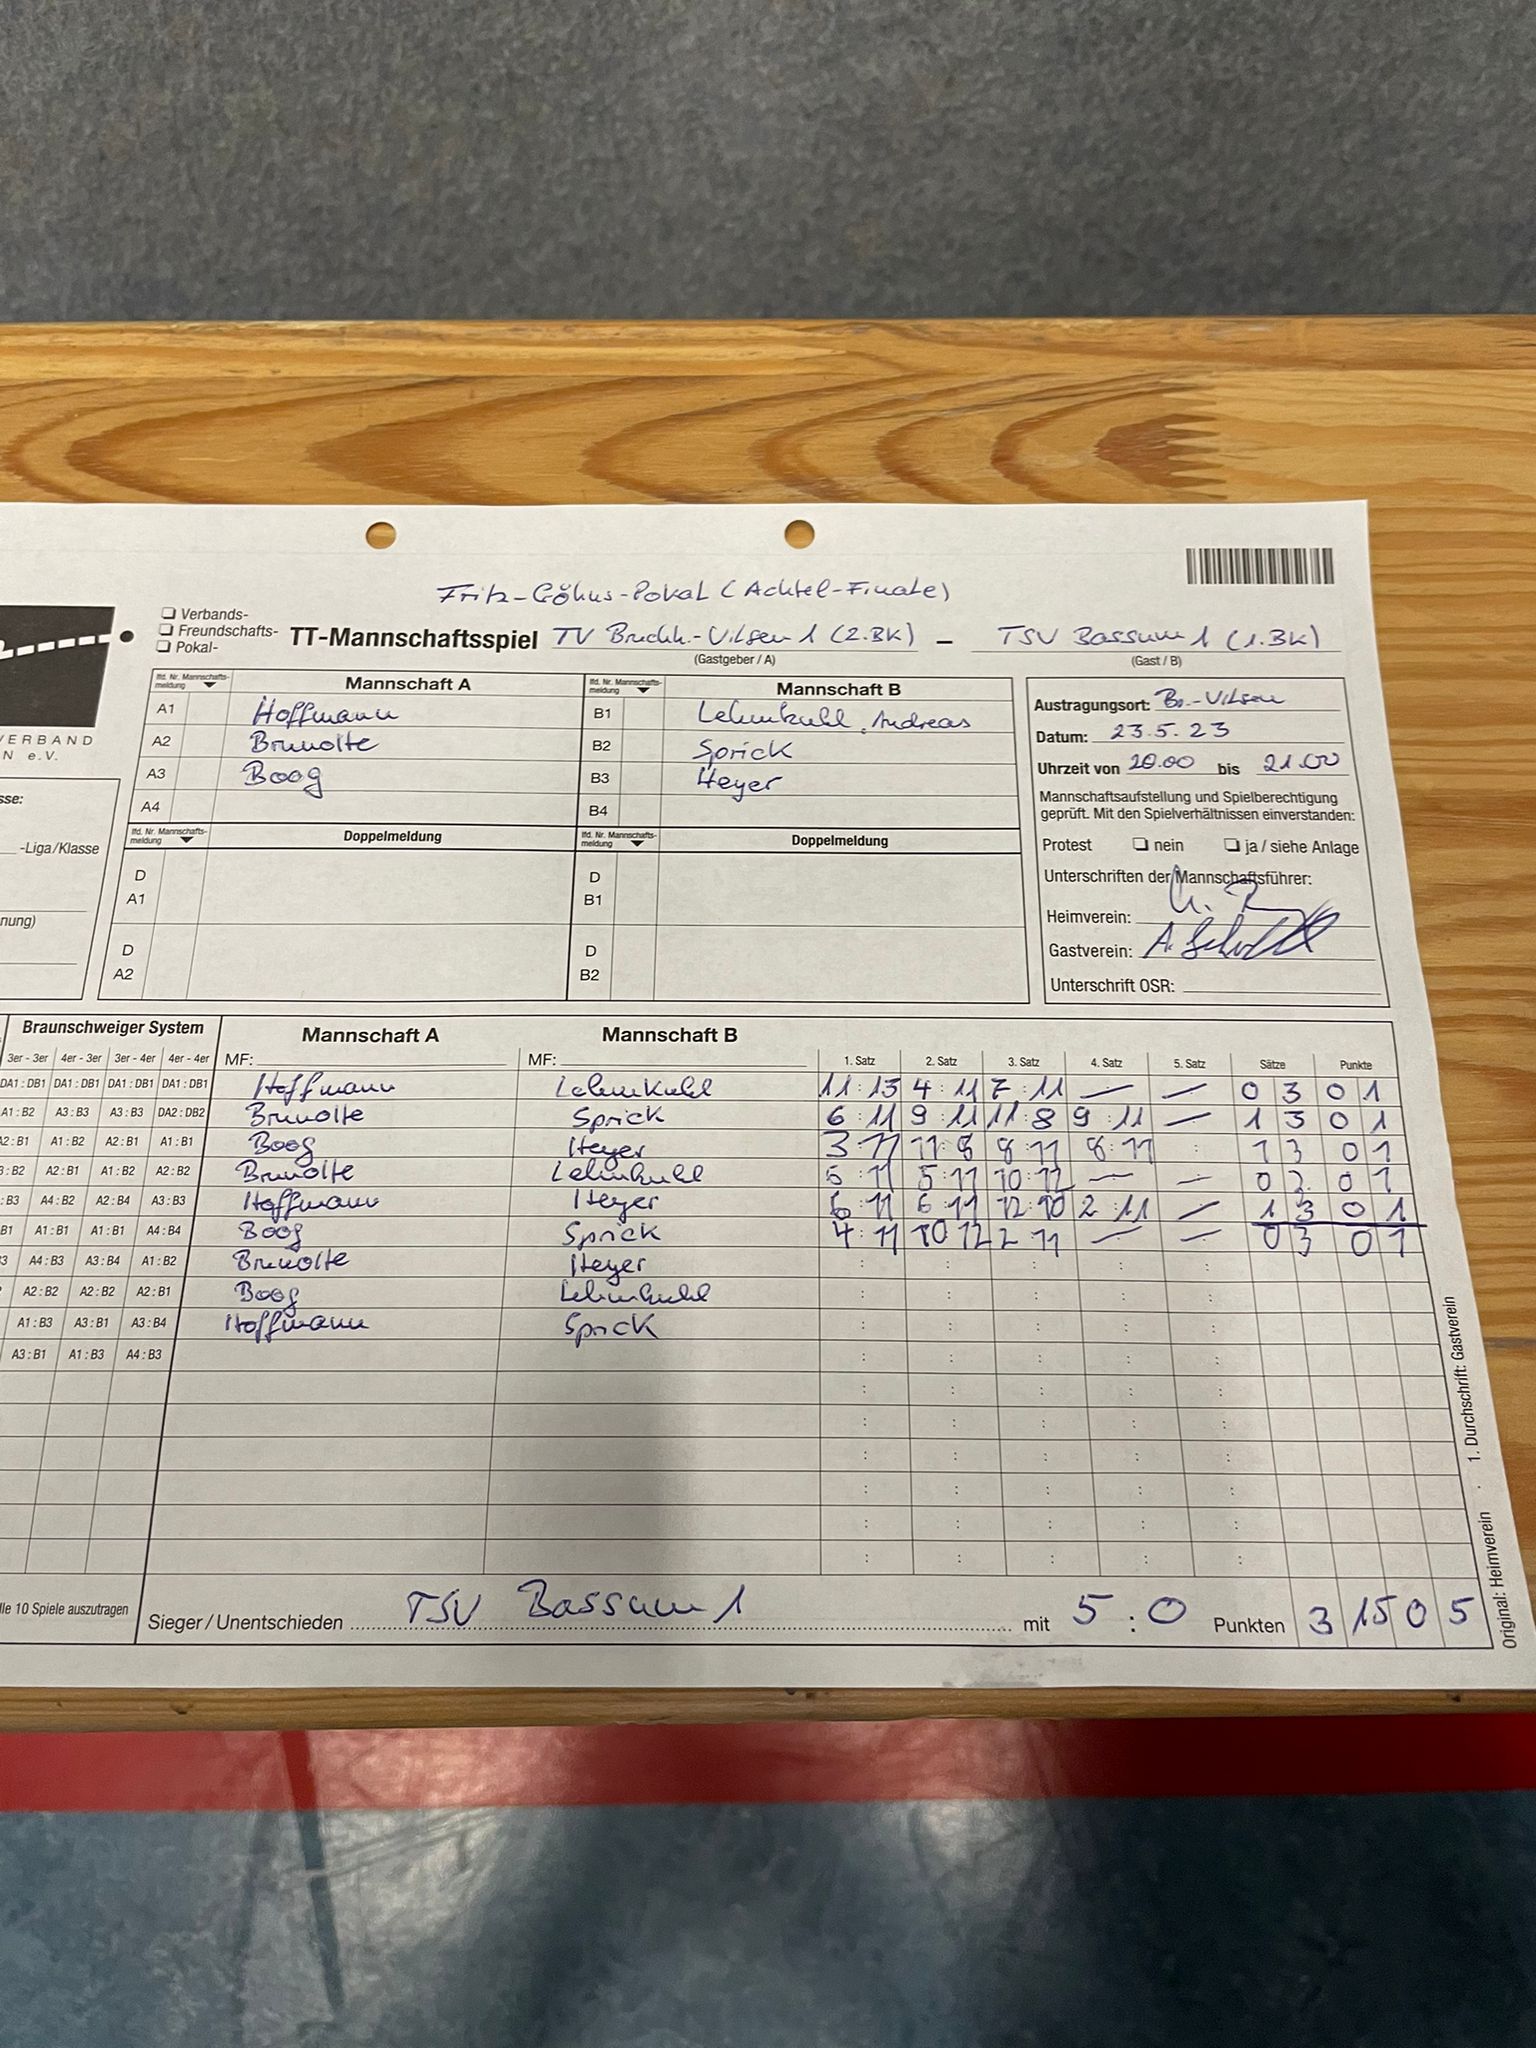 Fritz-Göhus-Pokal (Achtel-Finale)
❏ Verbands-
❏ Freundschafts-
❏ Pokal-
TT-Mannschaftsspiel TV Bruchh.-Vilsen 1 (2.BK) – TSV Bassum 1 (1.BK)
(Gastgeber / A) (Gast / B)
VERBAND
N e.V.
lfd. Nr. Mannschafts-meldung Mannschaft A lfd. Nr. Mannschafts-meldung Mannschaft B
A1 Hoffmann B1 Lehmkuhl, Andreas
A2 Brunolte B2 Sprick
A3 Boog B3 Heyer
A4 B4
lfd. Nr. Mannschafts-meldung Doppelmeldung lfd. Nr. Mannschafts-meldung Doppelmeldung
D A1 D B1
D A2 D B2
Austragungsort: Br.-Vilsen
Datum: 23.5.23
Uhrzeit von 20.00 bis 21.00
Mannschaftsaufstellung und Spielberechtigung
geprüft. Mit den Spielverhältnissen einverstanden:
Protest ❏ nein ❏ ja / siehe Anlage
Unterschriften der Mannschaftsführer:
Heimverein:
Gastverein: A.
Unterschrift OSR:
sse:
-Liga/Klasse
nung)
Braunschweiger System Mannschaft A Mannschaft B
3er - 3er 4er - 3er 3er - 4er 4er - 4er MF: MF: 1. Satz 2. Satz 3. Satz 4. Satz 5. Satz Sätze Punkte
DA1 : DB1 DA1 : DB1 DA1 : DB1 DA1 : DB1 Hoffmann Lehmkuhl 11 : 13 4 : 11 7 : 11 — — 0 3 0 1
A1 : B2 A3 : B3 A3 : B3 DA2 : DB2 Brunolte Sprick 6 : 11 9 : 11 11 : 8 9 : 11 — 1 3 0 1
A2 : B1 A1 : B2 A2 : B1 A1 : B1 Boog Heyer 3 : 11 11 : 8 8 : 11 8 : 11 : 1 3 0 1
: B2 A2 : B1 A1 : B2 A2 : B2 Brunolte Lehmkuhl 5 : 11 5 : 11 10 : 12 — — 0 3 0 1
: B3 A4 : B2 A2 : B4 A3 : B3 Hoffmann Heyer 6 : 11 6 : 11 12 : 10 2 : 11 — 1 3 0 1
B1 A1 : B1 A1 : B1 A4 : B4 Boog Sprick 4 : 11 10 : 12 2 : 11 — — 0 3 0 1
3 A4 : B3 A3 : B4 A1 : B2 Brunolte Heyer : : : : :
A2 : B2 A2 : B2 A2 : B1 Boog Lehmkuhl : : : : :
A1 : B3 A3 : B1 A3 : B4 Hoffmann Sprick : : : : :
A3 : B1 A1 : B3 A4 : B3 : : : : :
: : : : :
: : : : :
: : : : :
: : : : :
: : : : :
: : : : :
lle 10 Spiele auszutragen Sieger / Unentschieden TSV Bassum 1 mit 5 : 0 Punkten 3 15 0 5
Original: Heimverein · 1. Durchschrift: Gastverein